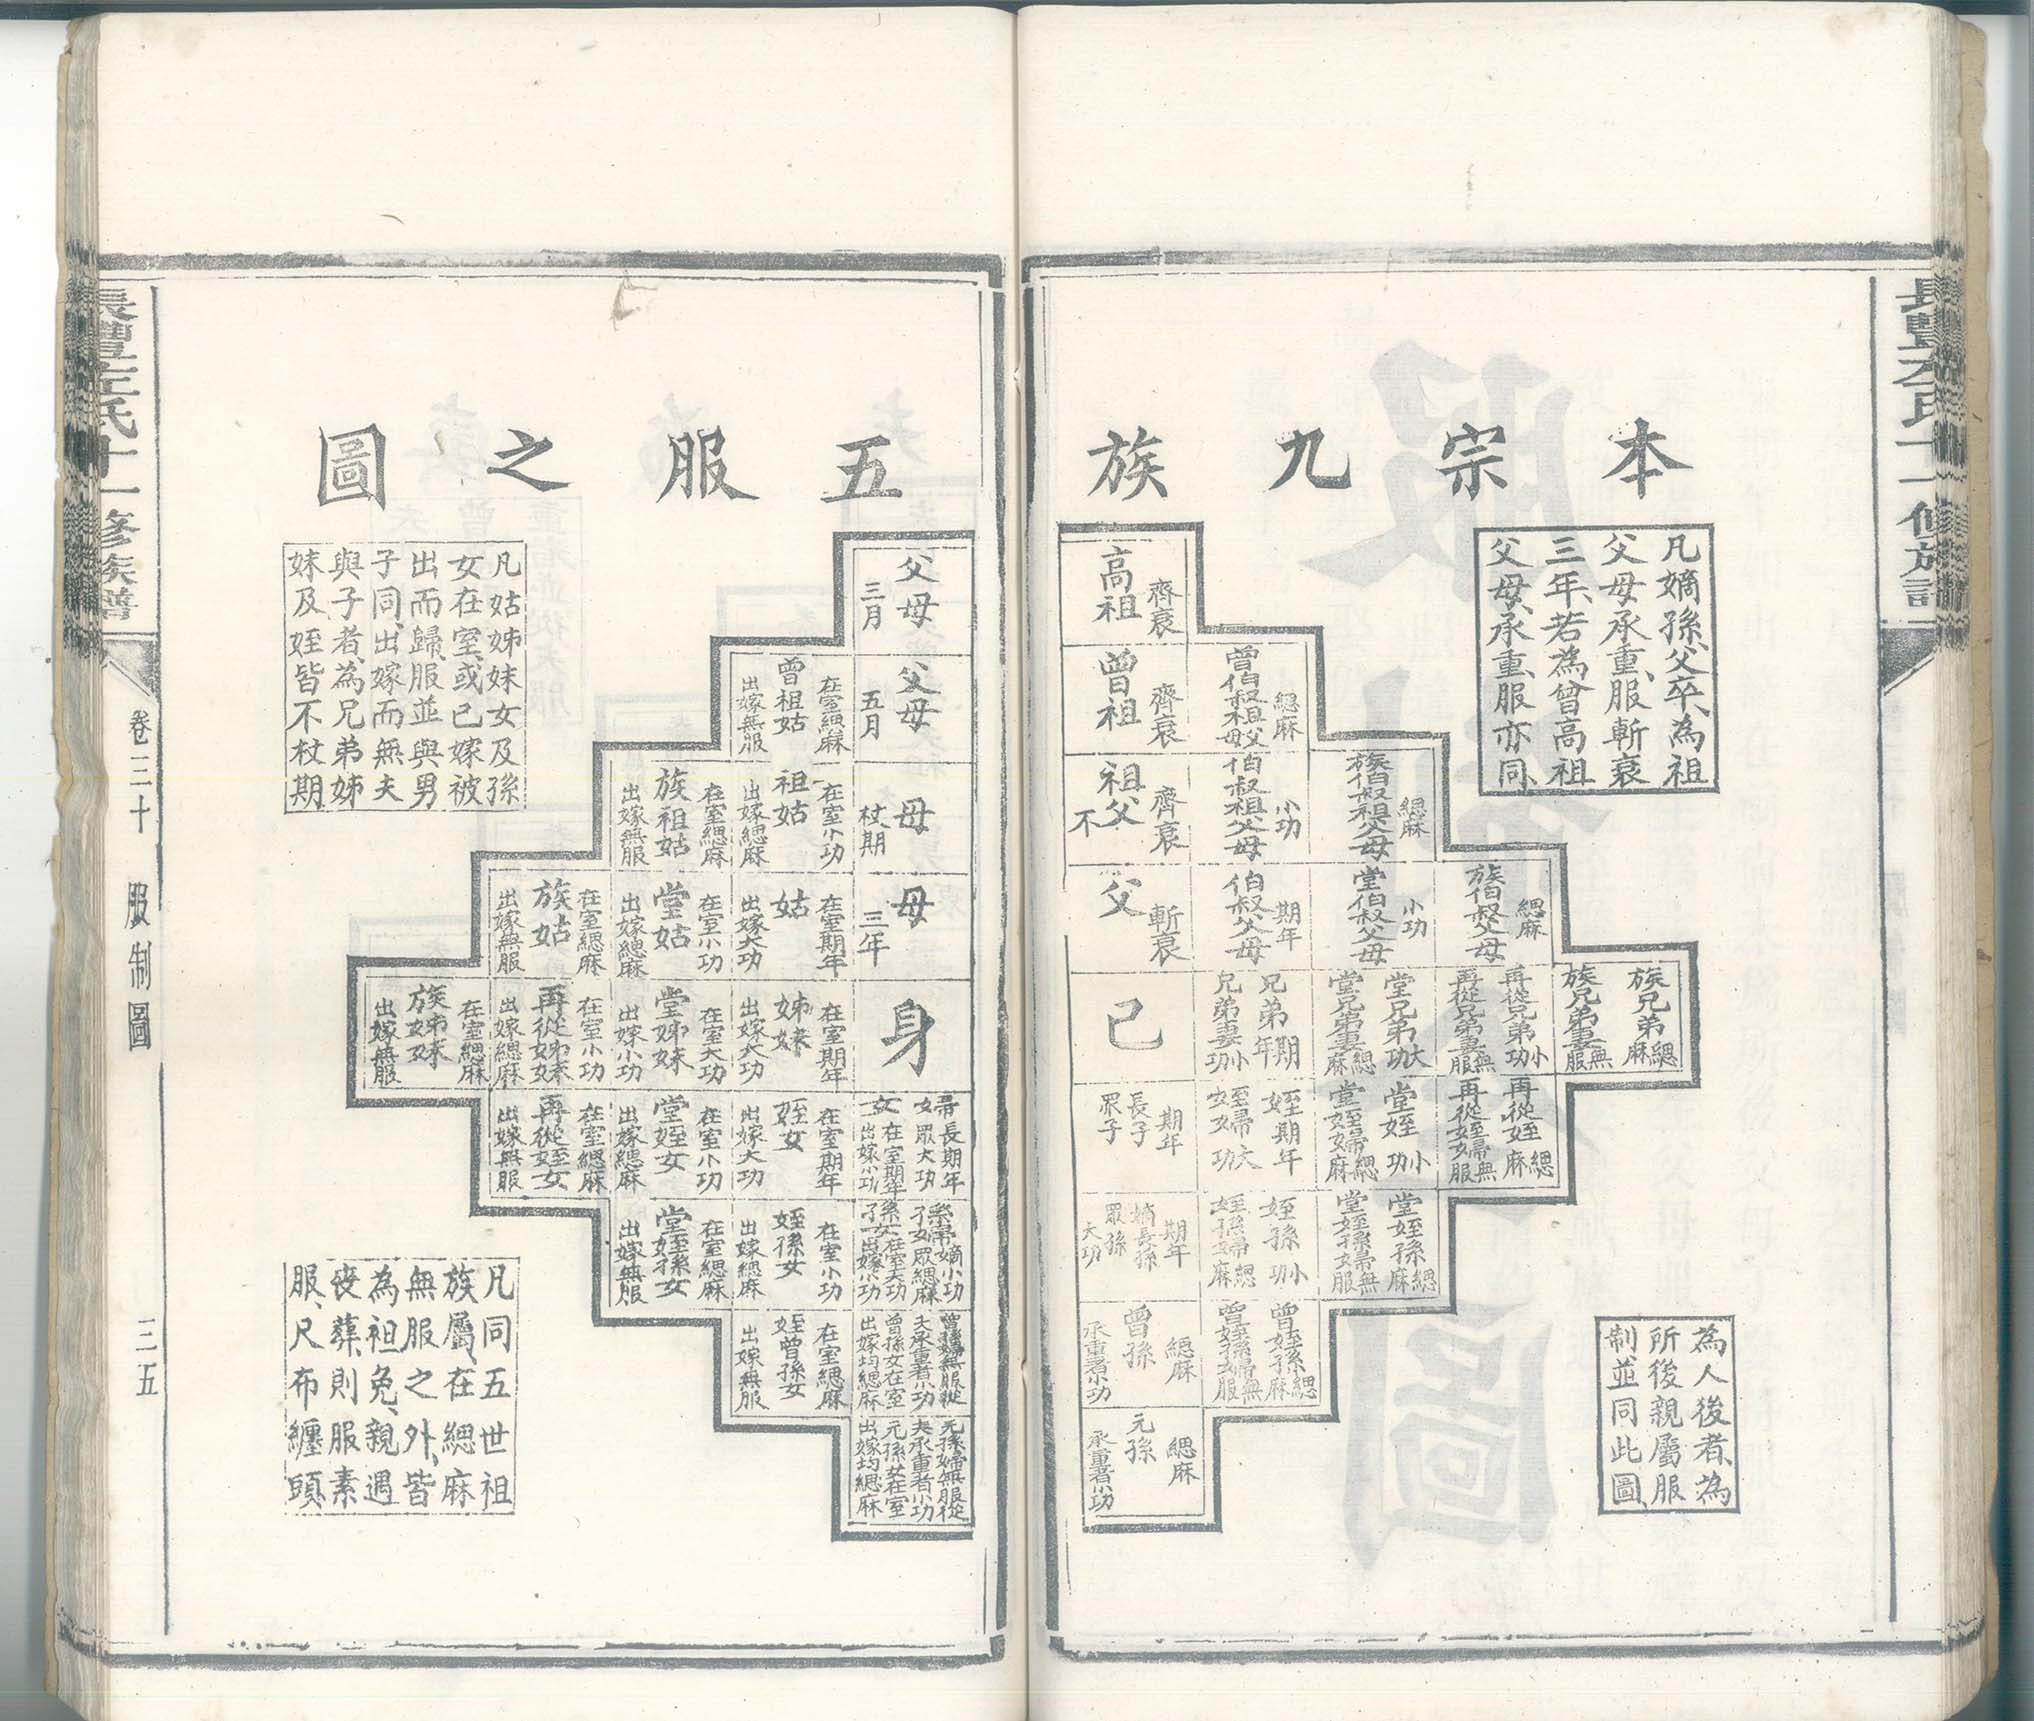 本宗九族
五服之圖
凡嫡孫、父卒、為祖
父母承重、服斬衰
三年、若為曾高祖
父母、承重、服亦同、
為人後者、為
所後親屬服
制並同此圖、
高祖 齊衰
父母 三月
曾祖 齊衰
父母 五月
曾伯叔祖父母 緦麻
曾祖姑 在室緦麻 出嫁無服
祖父 齊衰 不
母 杖期
伯叔祖父母 小功
族伯叔祖父母 緦麻
祖姑 在室小功 出嫁緦麻
族祖姑 在室緦麻 出嫁無服
父 斬衰
母 三年
伯叔父母 期年
堂伯叔父母 小功
族伯叔父母 緦麻
姑 在室期年 出嫁大功
堂姑 在室小功 出嫁緦麻
族姑 在室緦麻 出嫁無服
己
身
兄弟期年 兄弟妻小功
堂兄弟大功 堂兄弟妻緦麻
再從兄弟小功 再從兄弟妻無服
族兄弟緦麻 族兄弟妻無服
姊妹 在室期年 出嫁大功
堂姊妹 在室大功 出嫁小功
再從姊妹 在室小功 出嫁緦麻
族姊妹 在室緦麻 出嫁無服
長子 眾子 期年
婦長期年 眾大功
女在室期年 出嫁小功
姪期年 姪婦大功
堂姪小功 堂姪婦緦麻
再從姪緦麻 再從姪婦無服
姪女 在室期年 出嫁大功
堂姪女 在室小功 出嫁緦麻
再從姪女 在室緦麻 出嫁無服
嫡長孫 期年 眾孫 大功
孫婦嫡小功 眾緦麻
孫女在室大功 出嫁小功
姪孫小功 姪孫婦緦麻
堂姪孫緦麻 堂姪孫婦無服
姪孫女 在室小功 出嫁緦麻
堂姪孫女 在室緦麻 出嫁無服
曾孫 緦麻 承重者小功
曾孫婦無服從
夫承重者小功
曾孫女在室
出嫁均緦麻
曾姪孫緦麻 曾姪孫婦無服
姪曾孫女 在室緦麻 出嫁無服
元孫 緦麻 承重者小功
元孫婦無服從
夫承重者小功
元孫女在室
出嫁均緦麻
凡姑姊妹女及孫
女在室、或已嫁被
出而歸、服並與男
子同、出嫁而無夫
與子者、為兄弟姊
妹及姪皆不杖期
凡同五世祖
族屬、在緦麻
無服之外、皆
為袒免、親遇
喪葬、則服素
服、尺布纏頭、
長豐左氏十一修族譜
卷三十 服制圖
三五